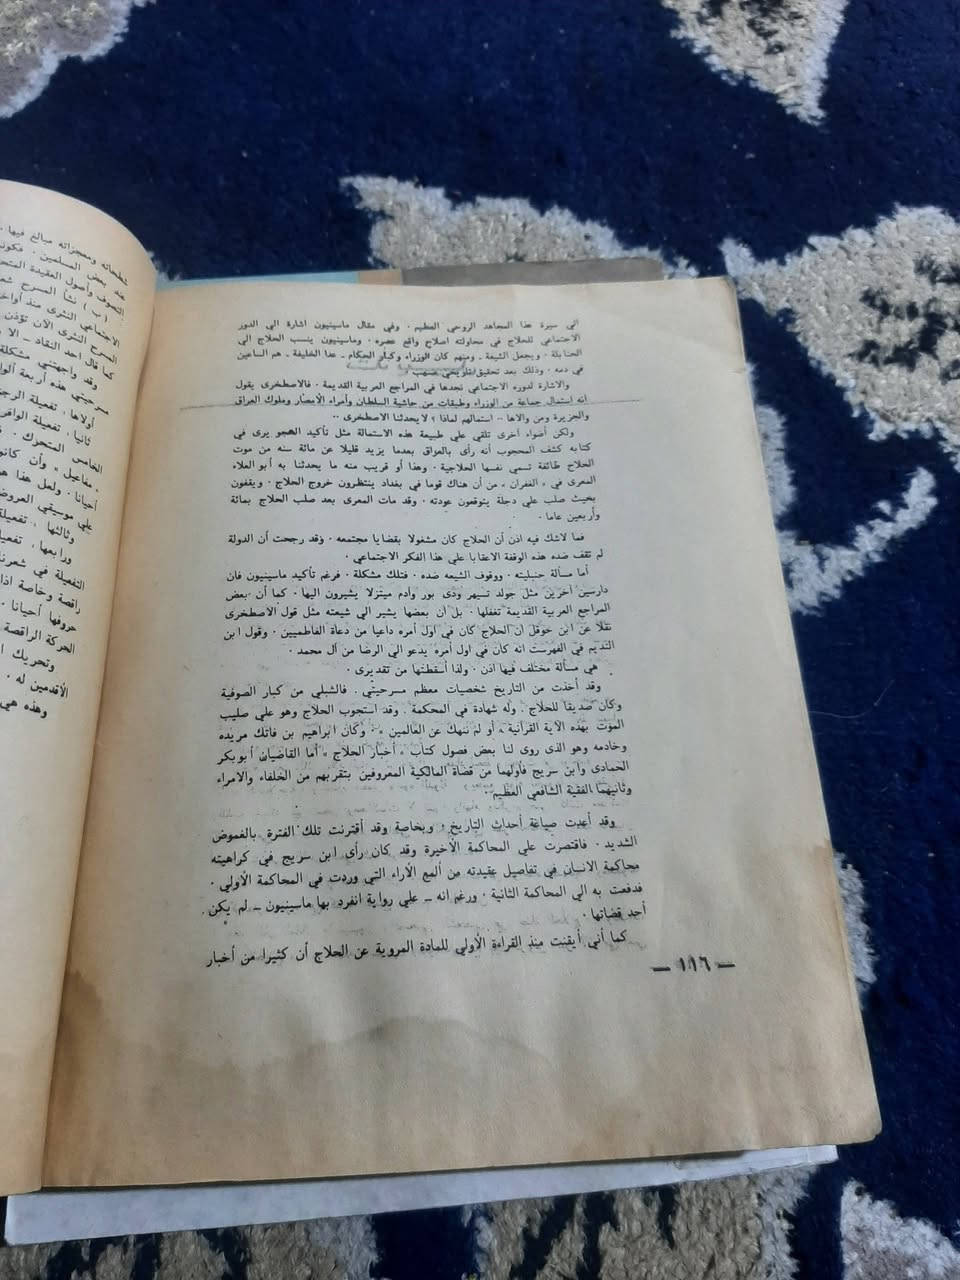 الى سيرة هذا المجاهد الروحي العظيم . وفي مقال ماسينيون اشارة الى الدور
الاجتماعي للحلاج في محاولته اصلاح واقع عصره . وماسينيون ينسب الحلاج الى
الحنابلة . ويجعل الشيعة ـ ومنهم كان الوزراء وكبار الحكام ـ عدا الخليفة ـ هم الساعين
في دمه . وذلك بعد تحقيق تاريخي
والاشارة لدوره الاجتماعي نجدها في المراجع العربية القديمة . فالاصطخرى يقول
انه استمال جماعة من الوزراء وطبقات من حاشية السلطان وأمراء الأمصار وملوك العراق
والجزيرة ومن والاها .. استمالهم لماذا ؟ لا يحدثنا الاصطخرى ..
ولكن أضواء أخرى تلقي علي طبيعة هذه الاستمالة مثل تأكيد الهجو يرى في
كتابه كشف المحجوب أنه رأى بالعراق بعدما يزيد قليلا عن مائة سنه من موت
الحلاج طائفة تسمي نفسها الحلاجية . وهذا أو قريب منه ما يحدثنا به أبو العلاء
المعرى في « الغفران » من أن هناك قوما في بغداد ينتظرون خروج الحلاج . ويقفون
بحيث صلب علي دجلة يتوقعون عودته . وقد مات المعرى بعد صلب الحلاج بمائة
وأربعين عاما .
فما لاشك فيه اذن أن الحلاج كان مشغولا بقضايا مجتمعه . وقد رجحت أن الدولة
لم تقف ضده هذه الوقفة الاعقابا علي هذا الفكر الاجتماعي .
أما مسألة حنبليته .. ووقوف الشيعه ضده . فتلك مشكلة . فرغم تأكيد ماسينيون فان
دارسين آخرين مثل جولد تسيهر ودى بور وآدم ميتزلا يشيرون اليها . كما أن بعض
المراجع العربية القديمة تغفلها . بل أن بعضها يشير الي شيعته مثل قول الاصطخرى
نقلا عن ابن حوقل ان الحلاج كان في اول أمره داعيا من دعاة الفاطميين . وقول ابن
النديم في الفهرست انه كان في اول أمره يدعو الي الرضا من آل محمد .
هي مسألة مختلف فيها اذن . ولذا أسقطتها من تقديرى .
وقد أخذت من التاريخ شخصيات معظم مسرحيتي . فالشبلي من كبار الصوفية
وكان صديقا للحلاج . وله شهادة في المحكمة . وقد استجوب الحلاج وهو علي صليب
الموت بهذه الآية القرآنية « أو لم ننهك عن العالمين » . وكان ابراهيم بن فاتك مريده
وخادمه وهو الذى روى لنا بعض فصول كتاب « أخبار الحلاج » أما القاضيان أبوبكر
الحمادى وابن سريج فأولهما من قضاة المالكية المعروفين بتقربهم من الخلفاء والامراء
وثانيهما الفقيه الشافعي العظيم .
وقد أعدت صياغة أحداث التاريخ ، وبخاصة وقد أقترنت تلك الفترة بالغموض
الشديد . فاقتصرت علي المحاكمة الأخيرة وقد كان رأى ابن سريج في كراهيته
محاكمة الانسان في تفاصيل عقيدته من ألمع الأراء التي وردت في المحاكمة الأولي .
فدفعت به الي المحاكمة الثانية . ورغم انه ـ علي رواية انفرد بها ماسينيون ـ لم يكن
أحد قضاتها .
كما أني أيقنت منذ القراءة الأولي للمادة المروية عن الحلاج أن كثيرا من أخبار
— ١١٦ —
شطحاته ومعجزاته مبالغ فيها .
عند بعض المسلمين . فكونت
التصوف وأصول العقيدة
( ب ) نشأ المسرح
الاجتماعي النثرى منذ
المسرح النثرى الآن تؤذن
كما قال احد النقاد ـ
وقد واجهتني مشكلة
مسرحيتي هذه أربعة
أولاها ، تفعيلة
ثانيا ، تفعيلة
الخامس المتحرك .
مفاعيل » وأن
أحيانا . ولعل هذا
علي موسيقي
وثالثها ، تفعيلة
ورابعها ،
التفعيلة في
راقصة وخاصة اذا
حروفها أحيانا .
الحركة الراقصة
وتحريك
الأقدمين له .
وهذه هي